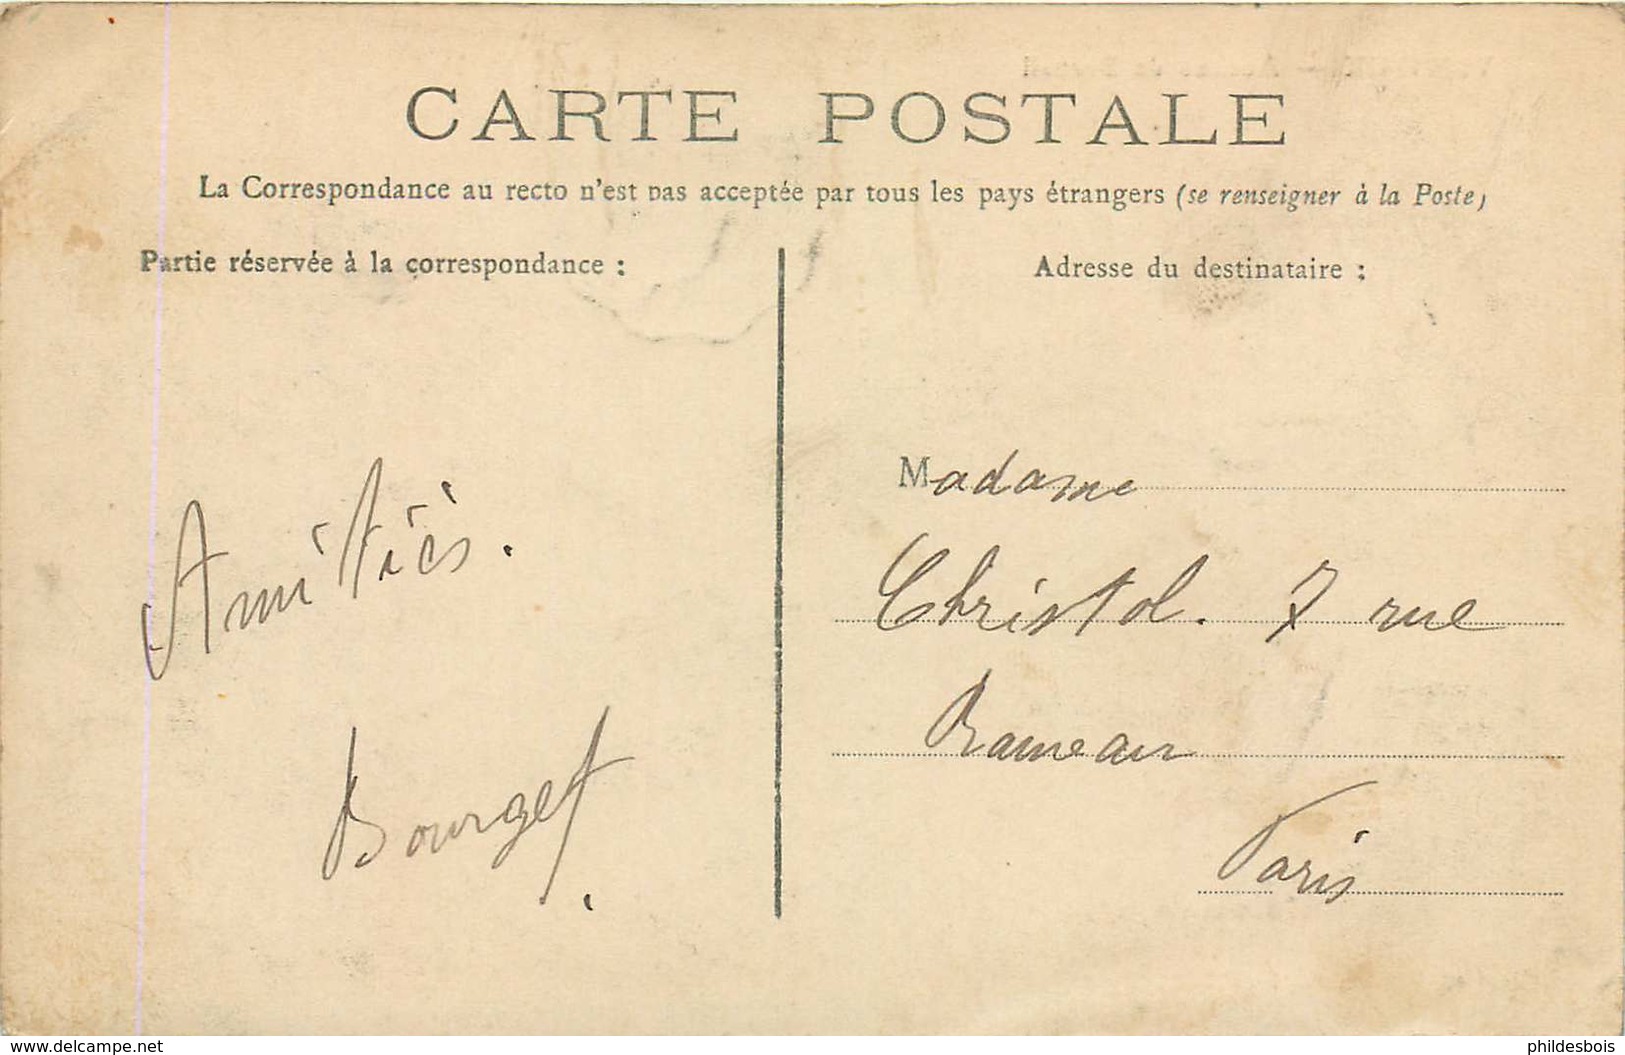 CARTE POSTALE
La Correspondance au recto n'est pas acceptée par tous les pays étrangers (se renseigner à la Poste)
Partie réservée à la correspondance :
Amitiés.
Bourget.
Adresse du destinataire :
Madame
Christol. 7 rue
Rameau
Paris
www.delcampe.net
phildesbois